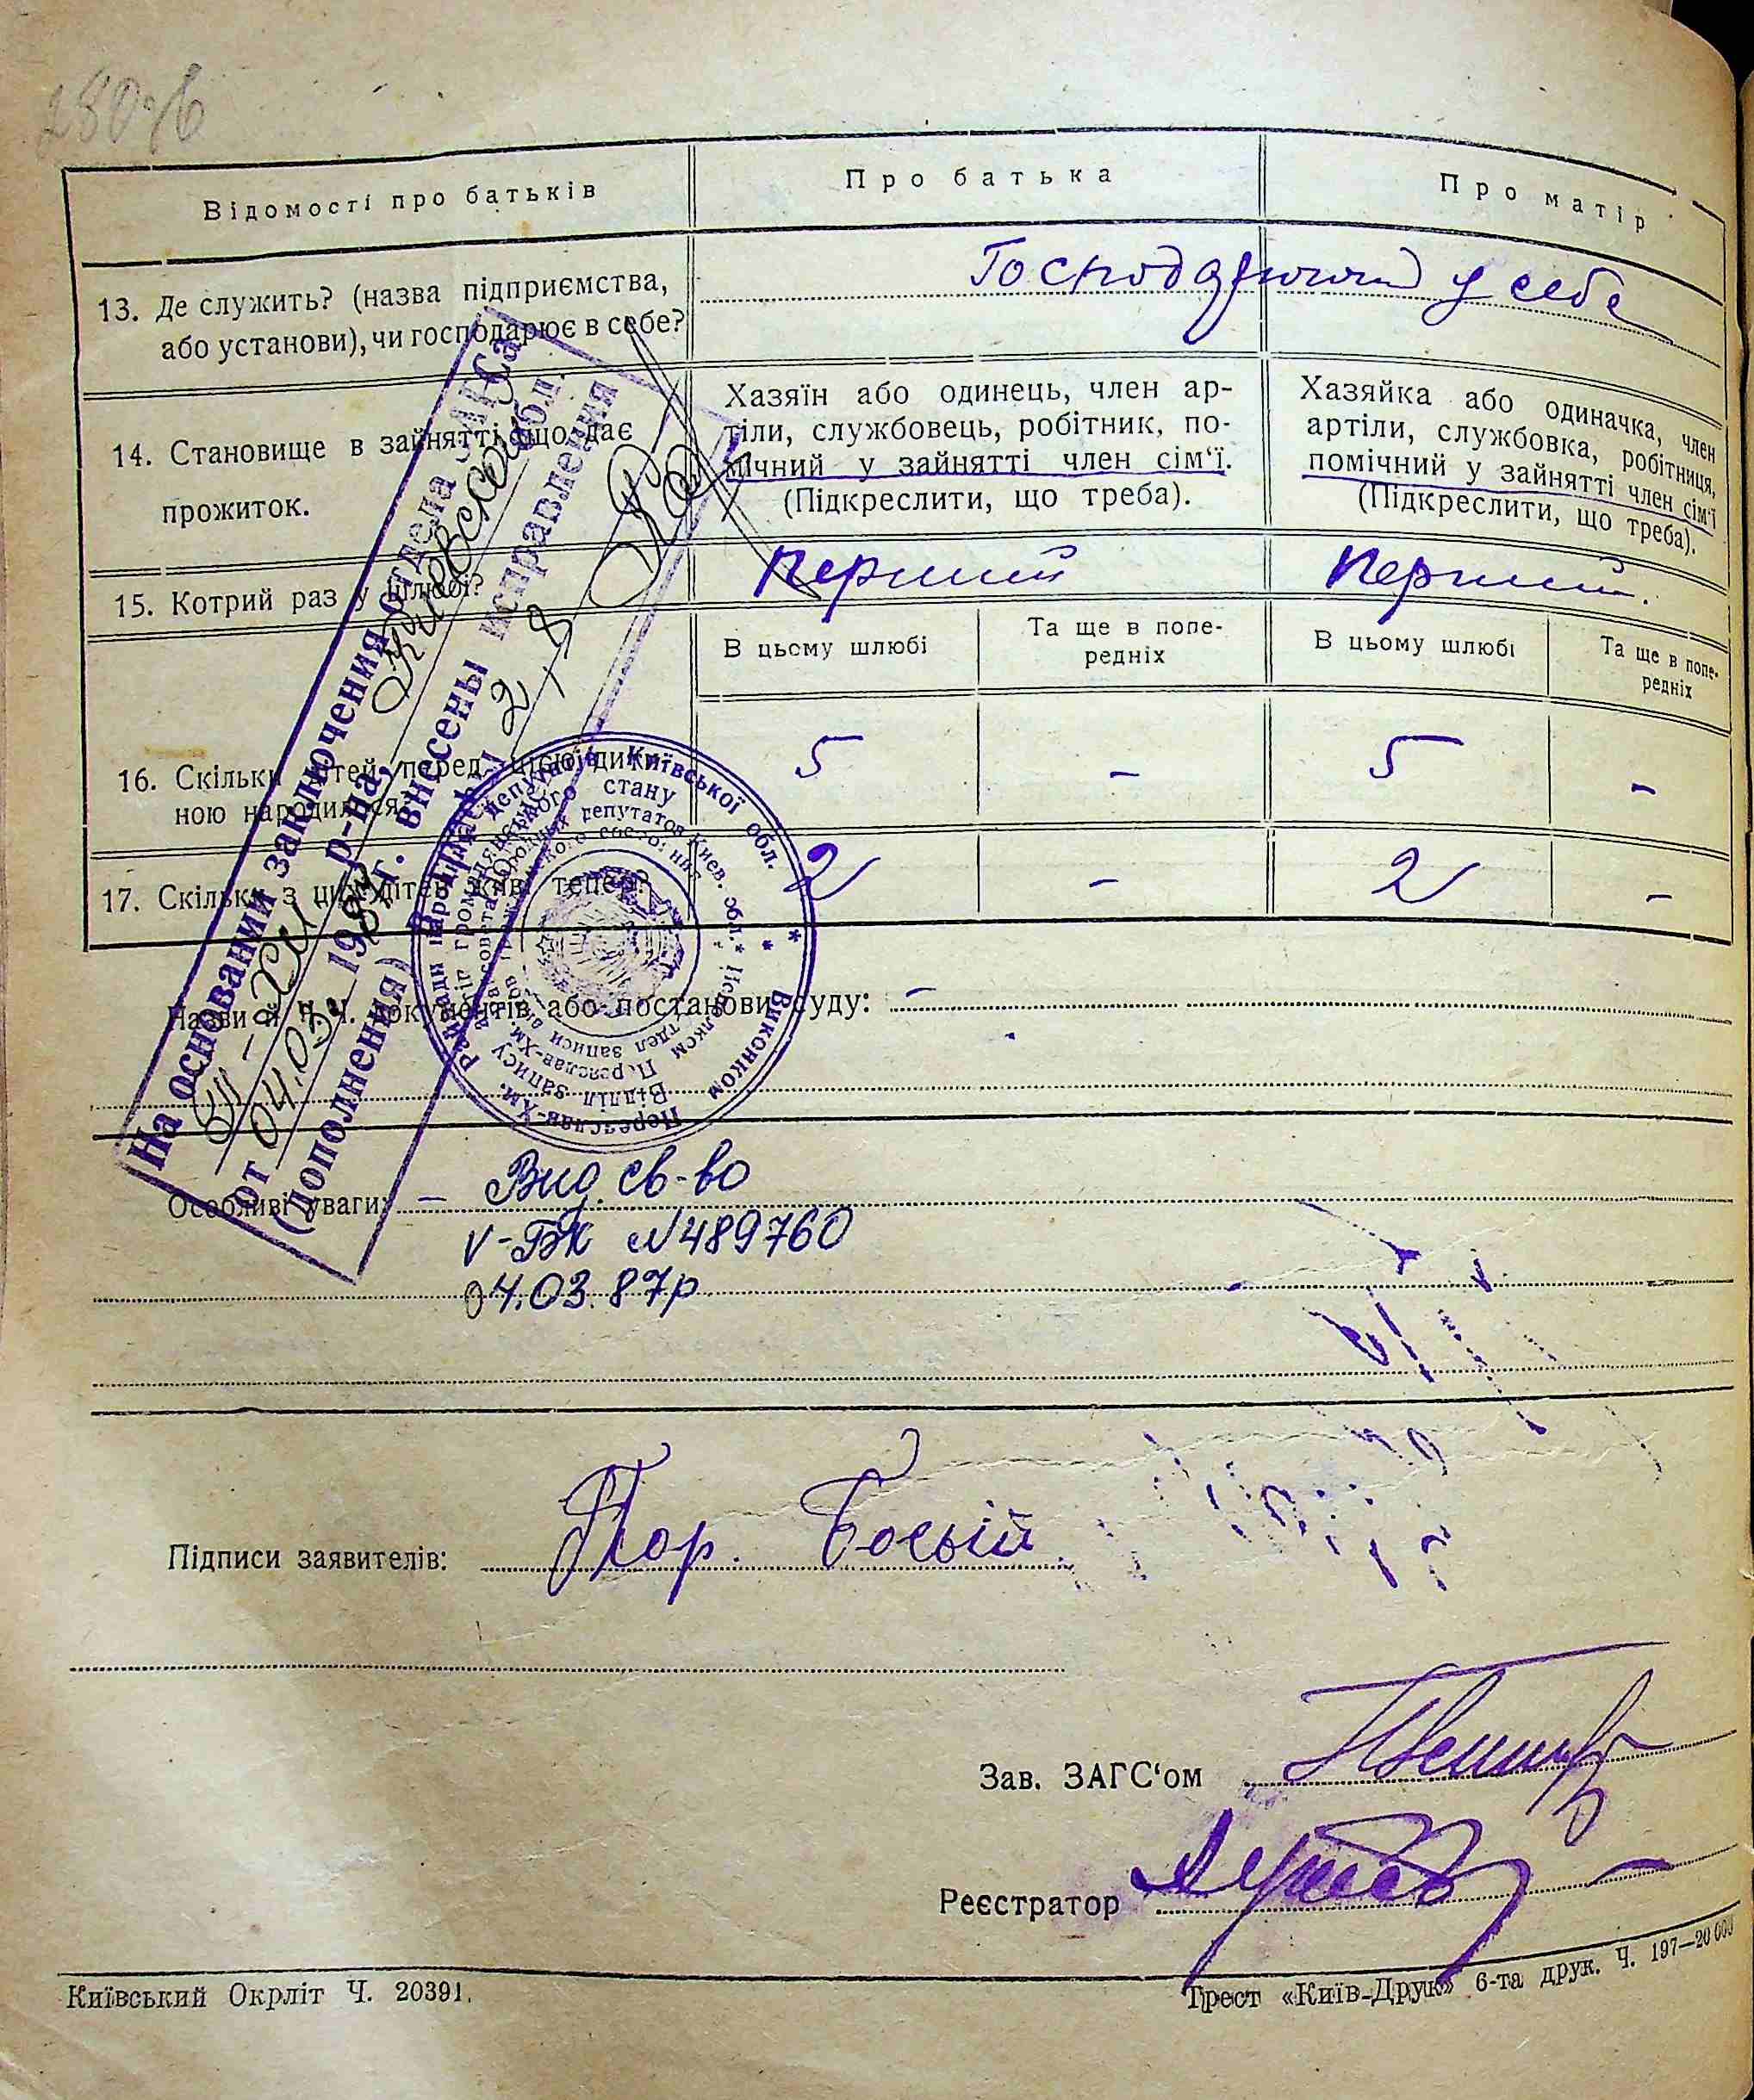 Відомості про батьків
Про батька
Про матір
13. Де служить? (назва підприємства,
або установи), чи господарює в себе?
у себе
14. Становище в зайнятті, що дає
прожиток.
Хазяїн або одинець, член ар-
тіли, службовець, робітник, по-
мічний у зайнятті член сім'ї.
(Підкреслити, що треба).
Хазяйка або одиначка, член
артіли, службовка, робітниця,
помічний у зайнятті член сім'ї
(Підкреслити, що треба).
15. Котрий раз у шлюбі?
Перший
Перший.
В цьому шлюбі
Та ще в попе-
редніх
В цьому шлюбі
Та ще в попе-
редніх
16. Скільки дітей перед цією дити-
ною народилося?
5
-
5
-
17. Скільки з цих дітей живі тепер?
2
-
2
-
Назви й Ч. Ч. документів або постанови суду: -
Особливі уваги: - Вид. св-во
V-БК №489760
04.03.87р.
На основании заключения отдела ЗАГСа
р-на, Киевской обл.
от 04.03. 1987 г. внесены исправления
(дополнения)
Підписи заявителів:
Зав. ЗАГС'ом
Реєстратор
Київський Окрліт Ч. 20391.
Трест «Київ-Друк» 6-та друк. Ч. 197—20 000